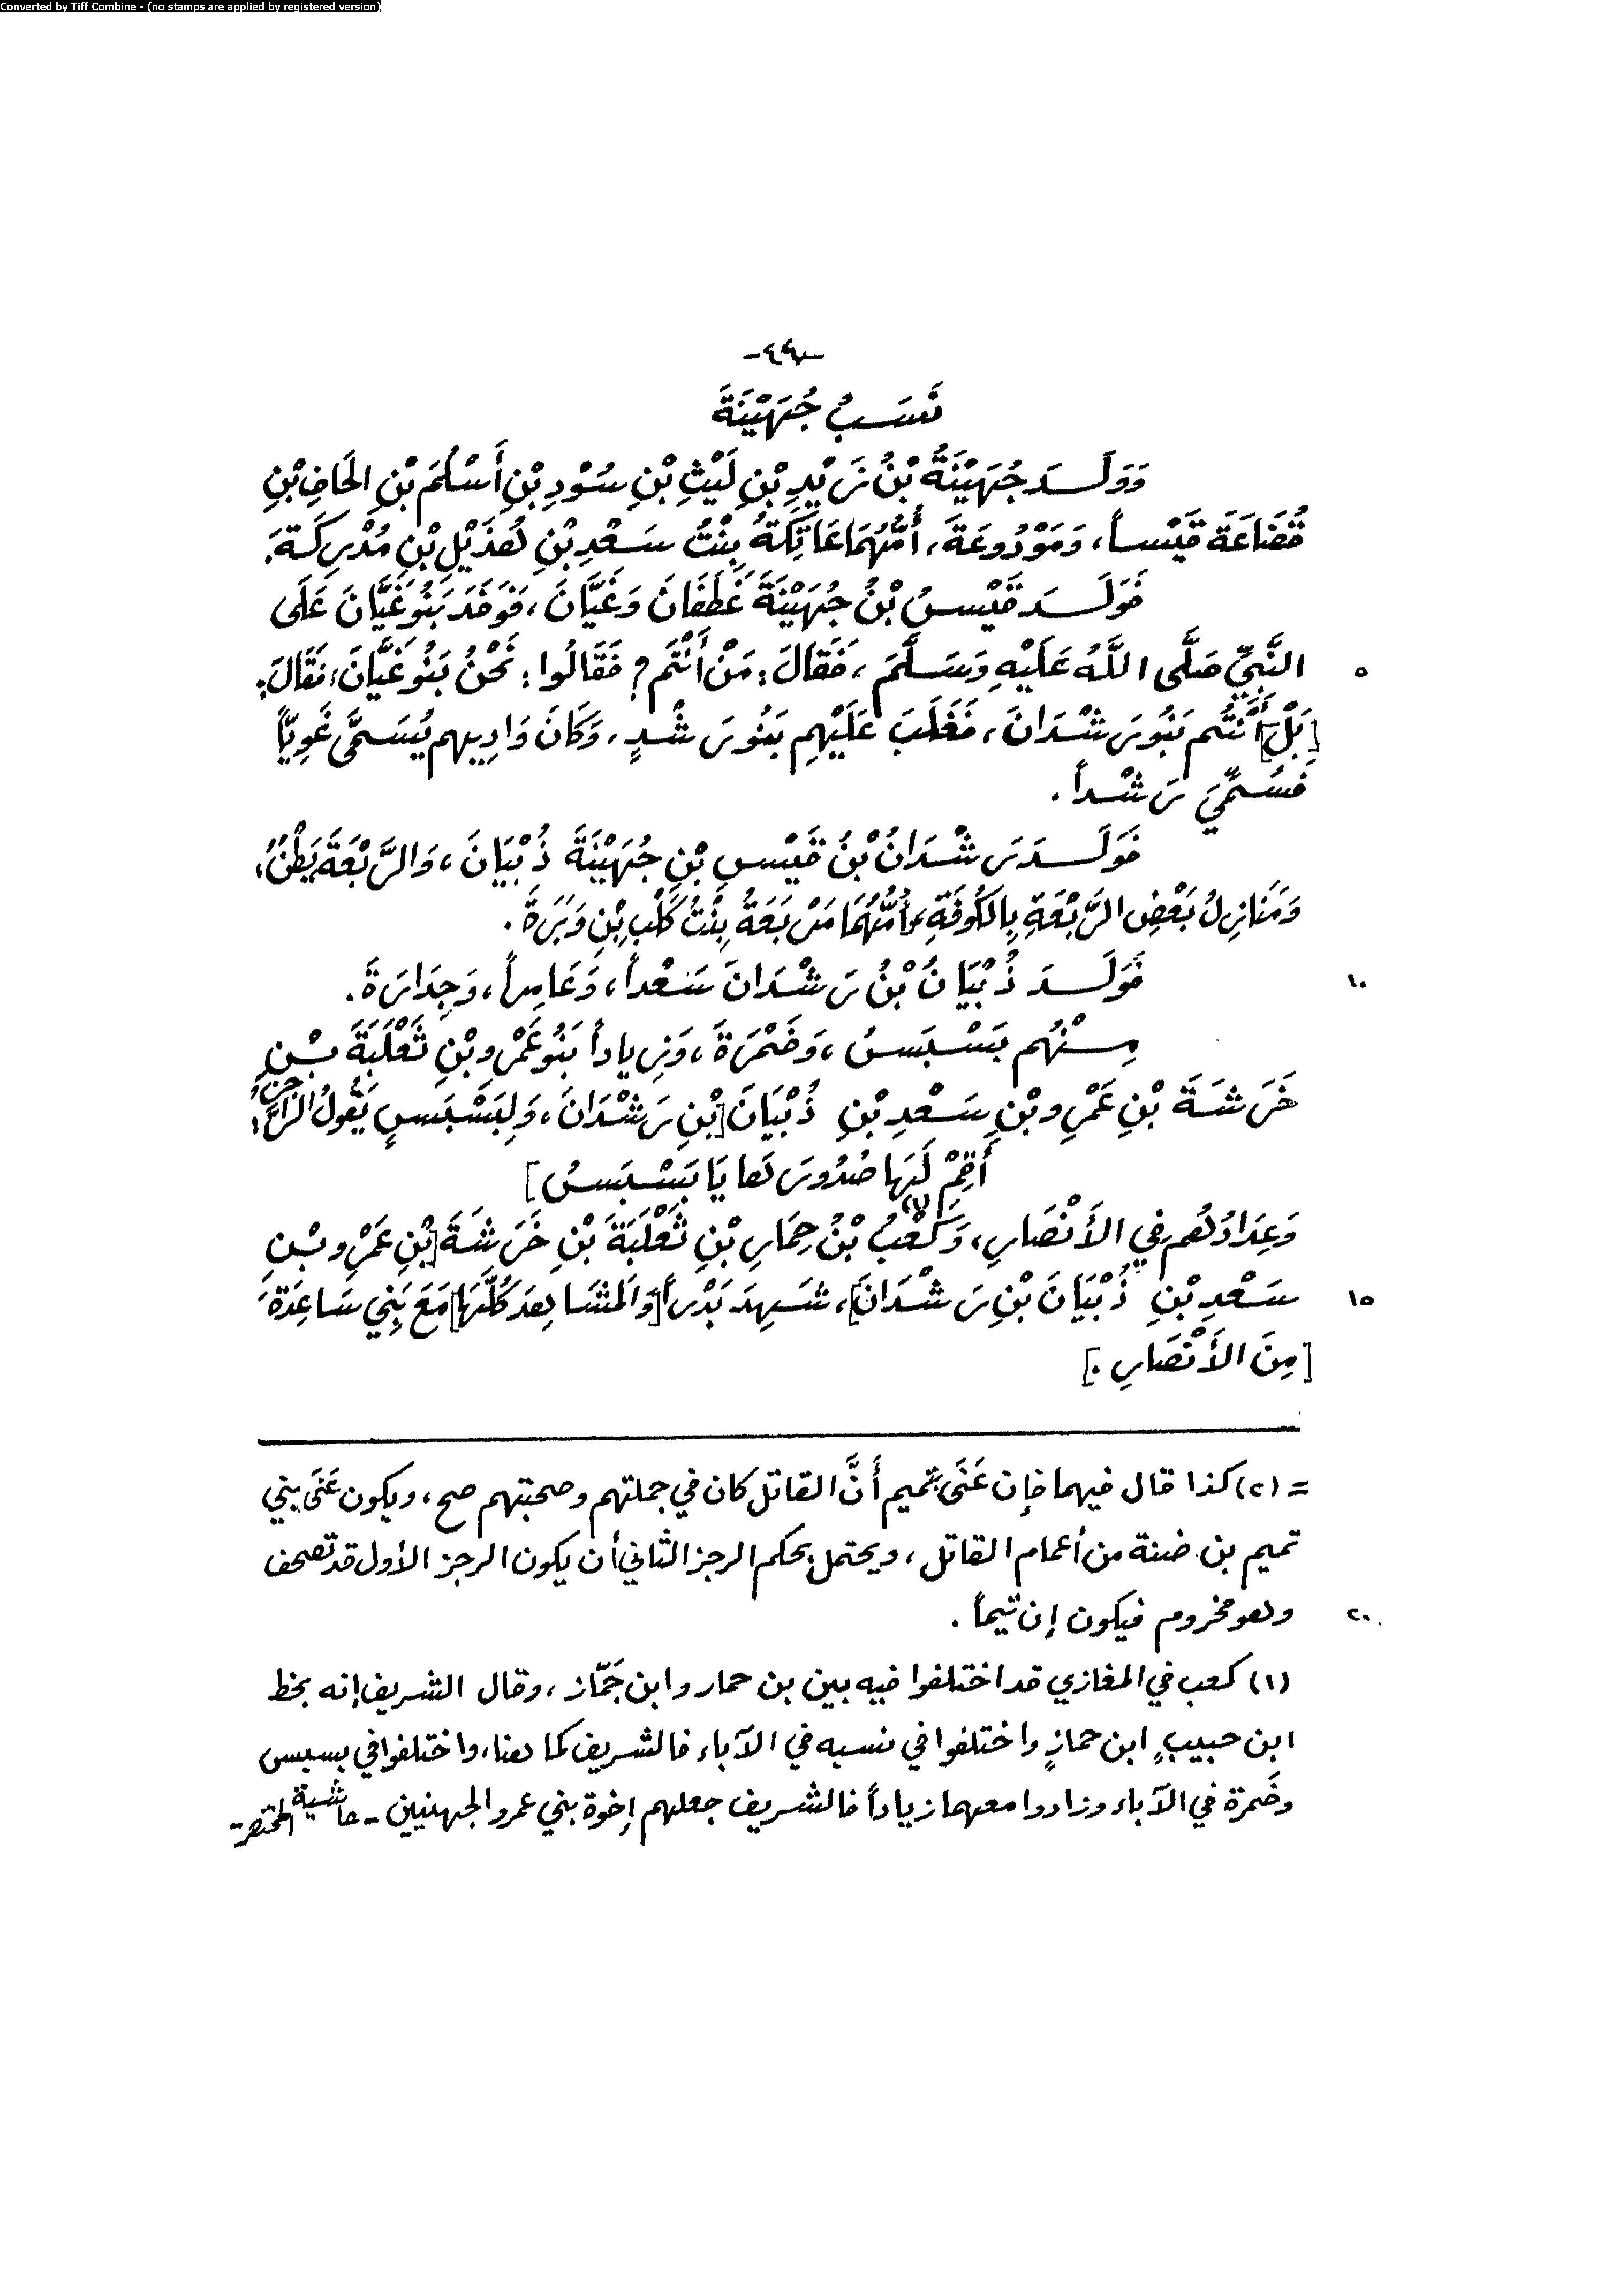 Converted by Tiff Combine - (no stamps are applied by registered version)
نَسَبُ جُهَيْنَةَ
وَوَلَدَ جُهَيْنَةُ بْنُ زَيْدِ بْنِ لَيْثِ بْنِ سُوْدِ بْنِ أَسْلُمَ بْنِ الحَافِ بْنِ
قُضَاعَةَ قَيْساً، وَمَوْدُوعَةَ، أُمُّهُمَا عَاتِكَةُ بِنْتُ سَعْدِ بْنِ هُذَيْلِ بْنِ مُدْرِكَةَ.
فَوَلَدَ قَيْسُ بْنُ جُهَيْنَةَ غَطَفَانَ وَغَيَّانَ، فَوَفَدَ بَنُو غَيَّانَ عَلَى
٥ النَّبِيِّ صَلَّى اللَّهُ عَلَيْهِ وَسَلَّمَ، فَقَالَ: مَنْ أَنْتُم؟ فَقَالُوا: نَحْنُ بَنُو غَيَّانَ، فَقَالَ:
[بَلْ] أَنْتُم بَنُو رَشْدَانَ، فَغَلَبَ عَلَيْهِم بَنُو رَشْدٍ، وَكَانَ وَادِيهِم يُسَمَّى غَوِيّاً
فَسُمِّيَ رَشْداً.
فَوَلَدَ رَشْدَانُ بْنُ قَيْسِ بْنِ جُهَيْنَةَ ذُبْيَانَ، وَالرَّبْعَةَ بَطْنٌ،
وَمَنَازِلُ بَعْضِ الرَّبْعَةِ بِالكُوفَةِ، وَأُمُّهُمَا مَرْبَعَةُ بِنْتُ كَلْبِ بْنِ وَبَرَةَ.
١٠ فَوَلَدَ ذُبْيَانُ بْنُ رَشْدَانَ سَعْداً، وَعَامِراً، وَجِدَارَةَ.
مِنْهُم بَسْبَسُ، وَضَمْرَةَ، وَزِياداً بَنُو عَمْرِو بْنِ ثَعْلَبَةَ بْنِ
خَرَشَةَ بْنِ عَمْرِو بْنِ سَعْدِ بْنِ ذُبْيَانَ [بْنِ رَشْدَانَ، وَلِبَسْبَسٍ يَقُولُ الرَّاجِزُ:
أَقِمْ لَهَا صُدُورَهَا يَا بَسْبَسُ]
وَعِدَادُهُم فِي الأَنْصَارِ، وَكَعْبُ (١) بْنُ حِمَارِ بْنِ ثَعْلَبَةَ بْنِ خَرَشَةَ [بْنِ عَمْرِو بْنِ
١٥ سَعْدِ بْنِ ذُبْيَانَ بْنِ رَشْدَانَ]، شَهِدَ بَدْراً [وَالمَشَاهِدَ كُلَّهَا] مَعَ بَنِي سَاعِدَةَ
[مِنَ الأَنْصَارِ.]
= (٢) كذا قال فيهما فإن عَنَى بتميم أَنَّ القاتل كان في جملتهم وصحبتهم صح، ويكون عَنَى بني
تميم بن ضنة من أعمام القاتل، ويحتمل بحكم الرجز الثاني أن يكون الرجز الأول قد تصحف
٢٠ وهو مخروم فيكون إن تيماً.
(١) كعب في المغازي قد اختلفوا فيه بين بن حمار وابن جَمّاز، وقال الشريف إنه بخط
ابن حبيبٍ ابن حمازٍ واختلفوا في نسبه في الآباء فالشريف كما هنا، واختلفوا في بسبس
وضَمرة في الآباء وزادوا معهما زياداً فالشريف جعلهم إخوة بني عمرو الجهنيين - حاشية المختصر -